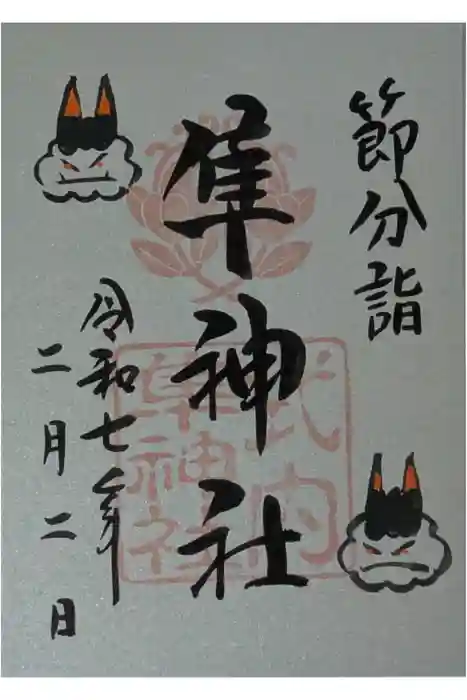 節分詣
隼神社
式内
隼神社
令和七年
二月二日